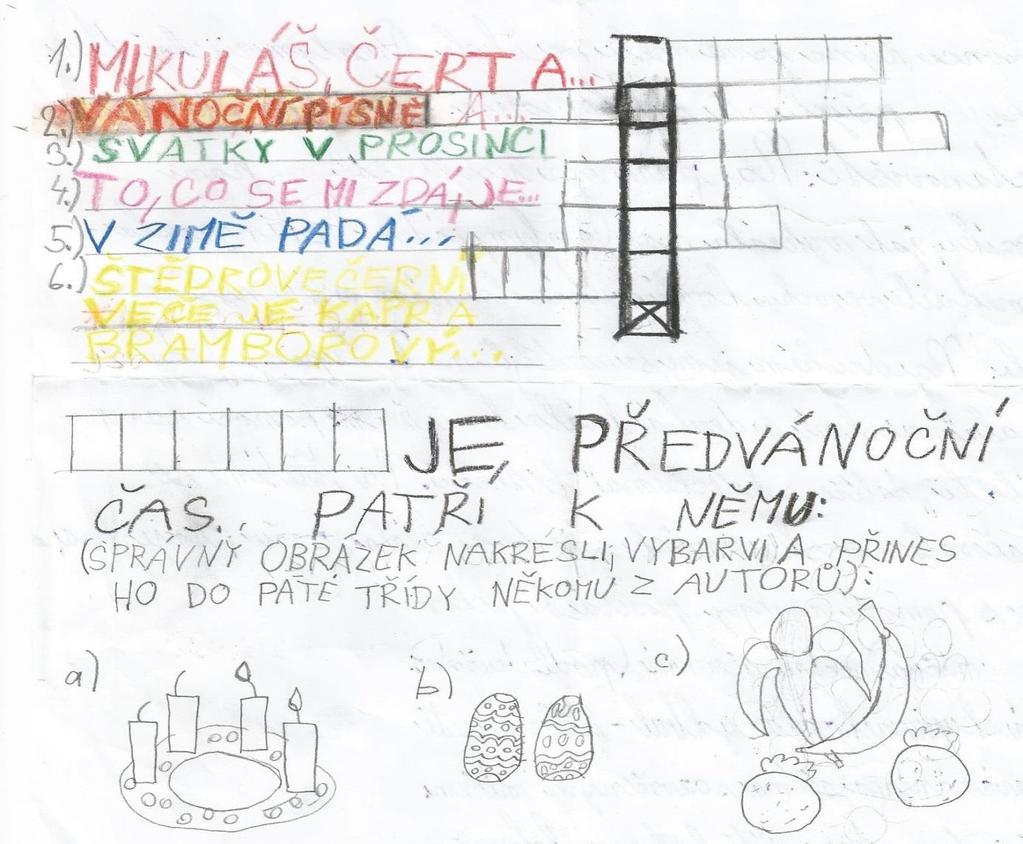 1.) MIKULÁŠ, ČERT A...
2.) VÁNOČNÍ PÍSNĚ A...
3.) SVÁTKY V PROSINCI
4.) TO, CO SE MI ZDÁ, JE...
5.) V ZIMĚ PADÁ...
6.) ŠTĚDROVEČERNÍ
VEČE JE KAPR A
BRAMBOROVÝ...
JE PŘEDVÁNOČNÍ
ČAS. PATŘÍ K NĚMU:
(SPRÁVNÝ OBRÁZEK NAKRESLI, VYBARVI A PŘINES
HO DO PÁTÉ TŘÍDY NĚKOMU Z AUTORŮ):
a) b) c)